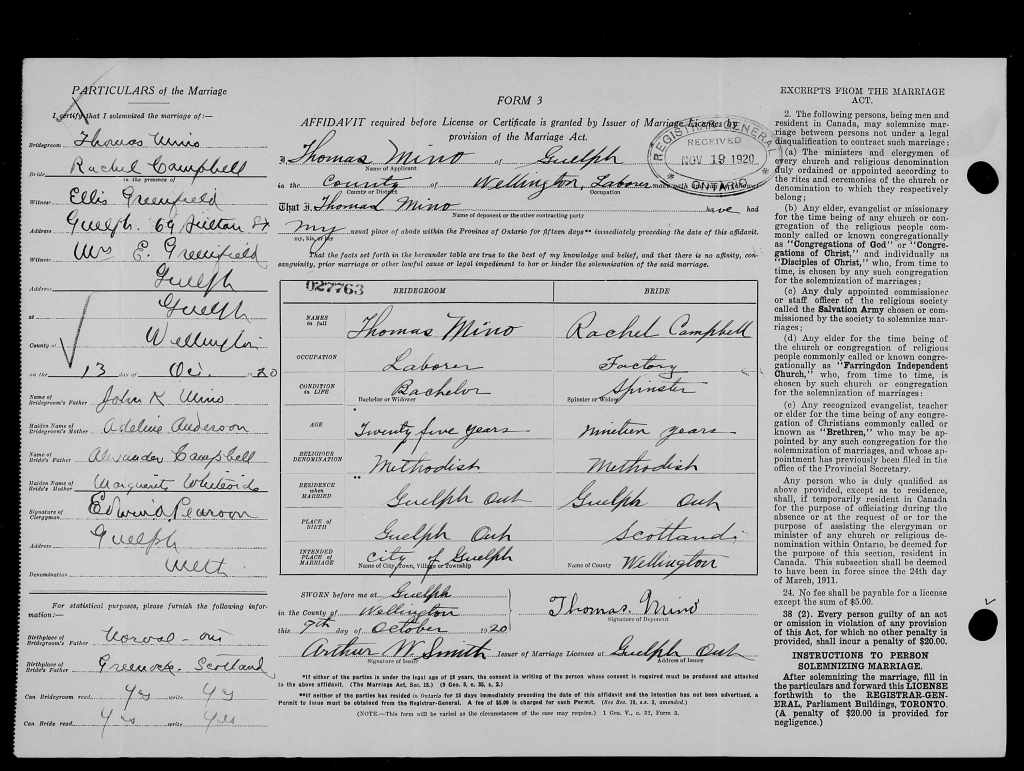 PARTICULARS of the Marriage
I certify that I solemnized the marriage of:—
Bridegroom Thomas Mino
Bride Rachel Campbell
in the presence of
Witness Ellis Greenfield
Address Guelph. 69 St
Witness Mrs E. Greenfield
Address Guelph
at Guelph
County of Wellington
on the 13 day of Oct. 1920
Name of Bridegroom's Father John K Mino
Maiden Name of Bridegroom's Mother Adeline Anderson
Name of Bride's Father Alexander Campbell
Maiden Name of Bride's Mother Marguerite Whiteside
Signature of Clergyman Edwin A. Pearson
Address Guelph
Denomination Meth
For statistical purposes, please furnish the following information:—
Birthplace of Bridegroom's Father Norval - Ont
Birthplace of Bride's Father Greenock Scotland
Can Bridegroom read Yes write Yes
Can Bride read Yes write Yes
FORM 3
AFFIDAVIT required before License or Certificate is granted by Issuer of Marriage Licenses by
provision of the Marriage Act.
REGISTRAR GENERAL
RECEIVED
NOV 19 1920
ONTARIO
I, Thomas Mino of Guelph
Name of Applicant
in the County of Wellington, Laborer make oath and say as follows:
County or District Occupation
That I, Thomas Mino have had
Name of deponent or the other contracting party
my usual place of abode within the Province of Ontario for fifteen days** immediately preceding the date of this affidavit.
my, his, or her
That the facts set forth in the hereunder table are true to the best of my knowledge and belief, and that there is no affinity, con-
sanguinity, prior marriage or other lawful cause or legal impediment to bar or hinder the solemnization of the said marriage.
027763 BRIDEGROOM BRIDE
NAMES in full Thomas Mino Rachel Campbell
OCCUPATION Laborer Factory
CONDITION IN LIFE Bachelor Spinster
Bachelor or Widower Spinster or Widow
AGE Twenty five years Nineteen years
RELIGIOUS DENOMINATION Methodist Methodist
RESIDENCE when MARRIED Guelph Ont Guelph Ont
PLACE OF BIRTH Guelph Ont Scotland
INTENDED PLACE OF MARRIAGE City of Guelph Wellington
Name of City, Town, Village or Township Name of County
SWORN before me at Guelph
in the County of Wellington
this 7th day of October 1920
Thomas. Mino
Signature of Deponent
Arthur W. Smith Issuer of Marriage Licenses at Guelph Ont
Signature of Issuer Address of Issuer
*If either of the parties is under the legal age of 18 years, the consent in writing of the person whose consent is required must be produced and attached
to the above affidavit. (The Marriage Act, Sec. 15.)
**If neither of the parties has resided in Ontario for 15 days immediately preceding the date of this affidavit and the intention has not been advertised, a
Permit to issue must be obtained from the Registrar-General. A fee of $5.00 is charged for such Permit.
(NOTE.—This form will be varied as the circumstances of the case may require.) 1 Geo. V., c. 32, Form 3.
EXCERPTS FROM THE MARRIAGE
ACT.
2. The following persons, being men and
resident in Canada, may solemnize mar-
riage between persons not under a legal
disqualification to contract such marriage:
(a) The ministers and clergymen of
every church and religious denomination
duly ordained or appointed according to
the rites and ceremonies of the church or
denomination to which they respectively
belong;
(b) Any elder, evangelist or missionary
for the time being of any church or con-
gregation of the religious people com-
monly called or known congregationally
as "Congregations of God" or "Congre-
gations of Christ," and individually as
"Disciples of Christ," who, from time to
time, is chosen by any such congregation
for the solemnization of marriages;
(c) Any duly appointed commissioner
or staff officer of the religious society
called the Salvation Army chosen or com-
missioned by the society to solemnize mar-
riages;
(d) Any elder for the time being of
the church or congregation of religious
people commonly called or known congre-
gationally as "Farringdon Independent
Church," who, from time to time, is
chosen by such church or congregation
for the solemnization of marriages:
(e) Any recognized evangelist, teacher
or elder for the time being of any congre-
gation of Christians commonly called or
known as "Brethren," who may be ap-
pointed by any such congregation for the
solemnization of marriages, and whose ap-
pointment has previously been filed in the
office of the Provincial Secretary.
Any person who is duly qualified as
above provided, except as to residence,
shall, if temporarily resident in Canada
for the purpose of officiating during the
absence or at the request of or for the
purpose of assisting the clergyman or
minister of any church or religious de-
nomination within Ontario, be deemed for
the purpose of this section, resident in
Canada. This subsection shall be deemed
to have been in force since the 24th day
of March, 1911.
24. No fee shall be payable for a license
except the sum of $5.00.
38 (2). Every person guilty of an act
or omission in violation of any provision
of this Act, for which no other penalty is
provided, shall incur a penalty of $20.00.
INSTRUCTIONS TO PERSON
SOLEMNIZING MARRIAGE.
After solemnizing the marriage, fill in
the particulars and forward this LICENSE
forthwith to the REGISTRAR-GEN-
ERAL, Parliament Buildings, TORONTO.
(A penalty of $20.00 is provided for
negligence.)